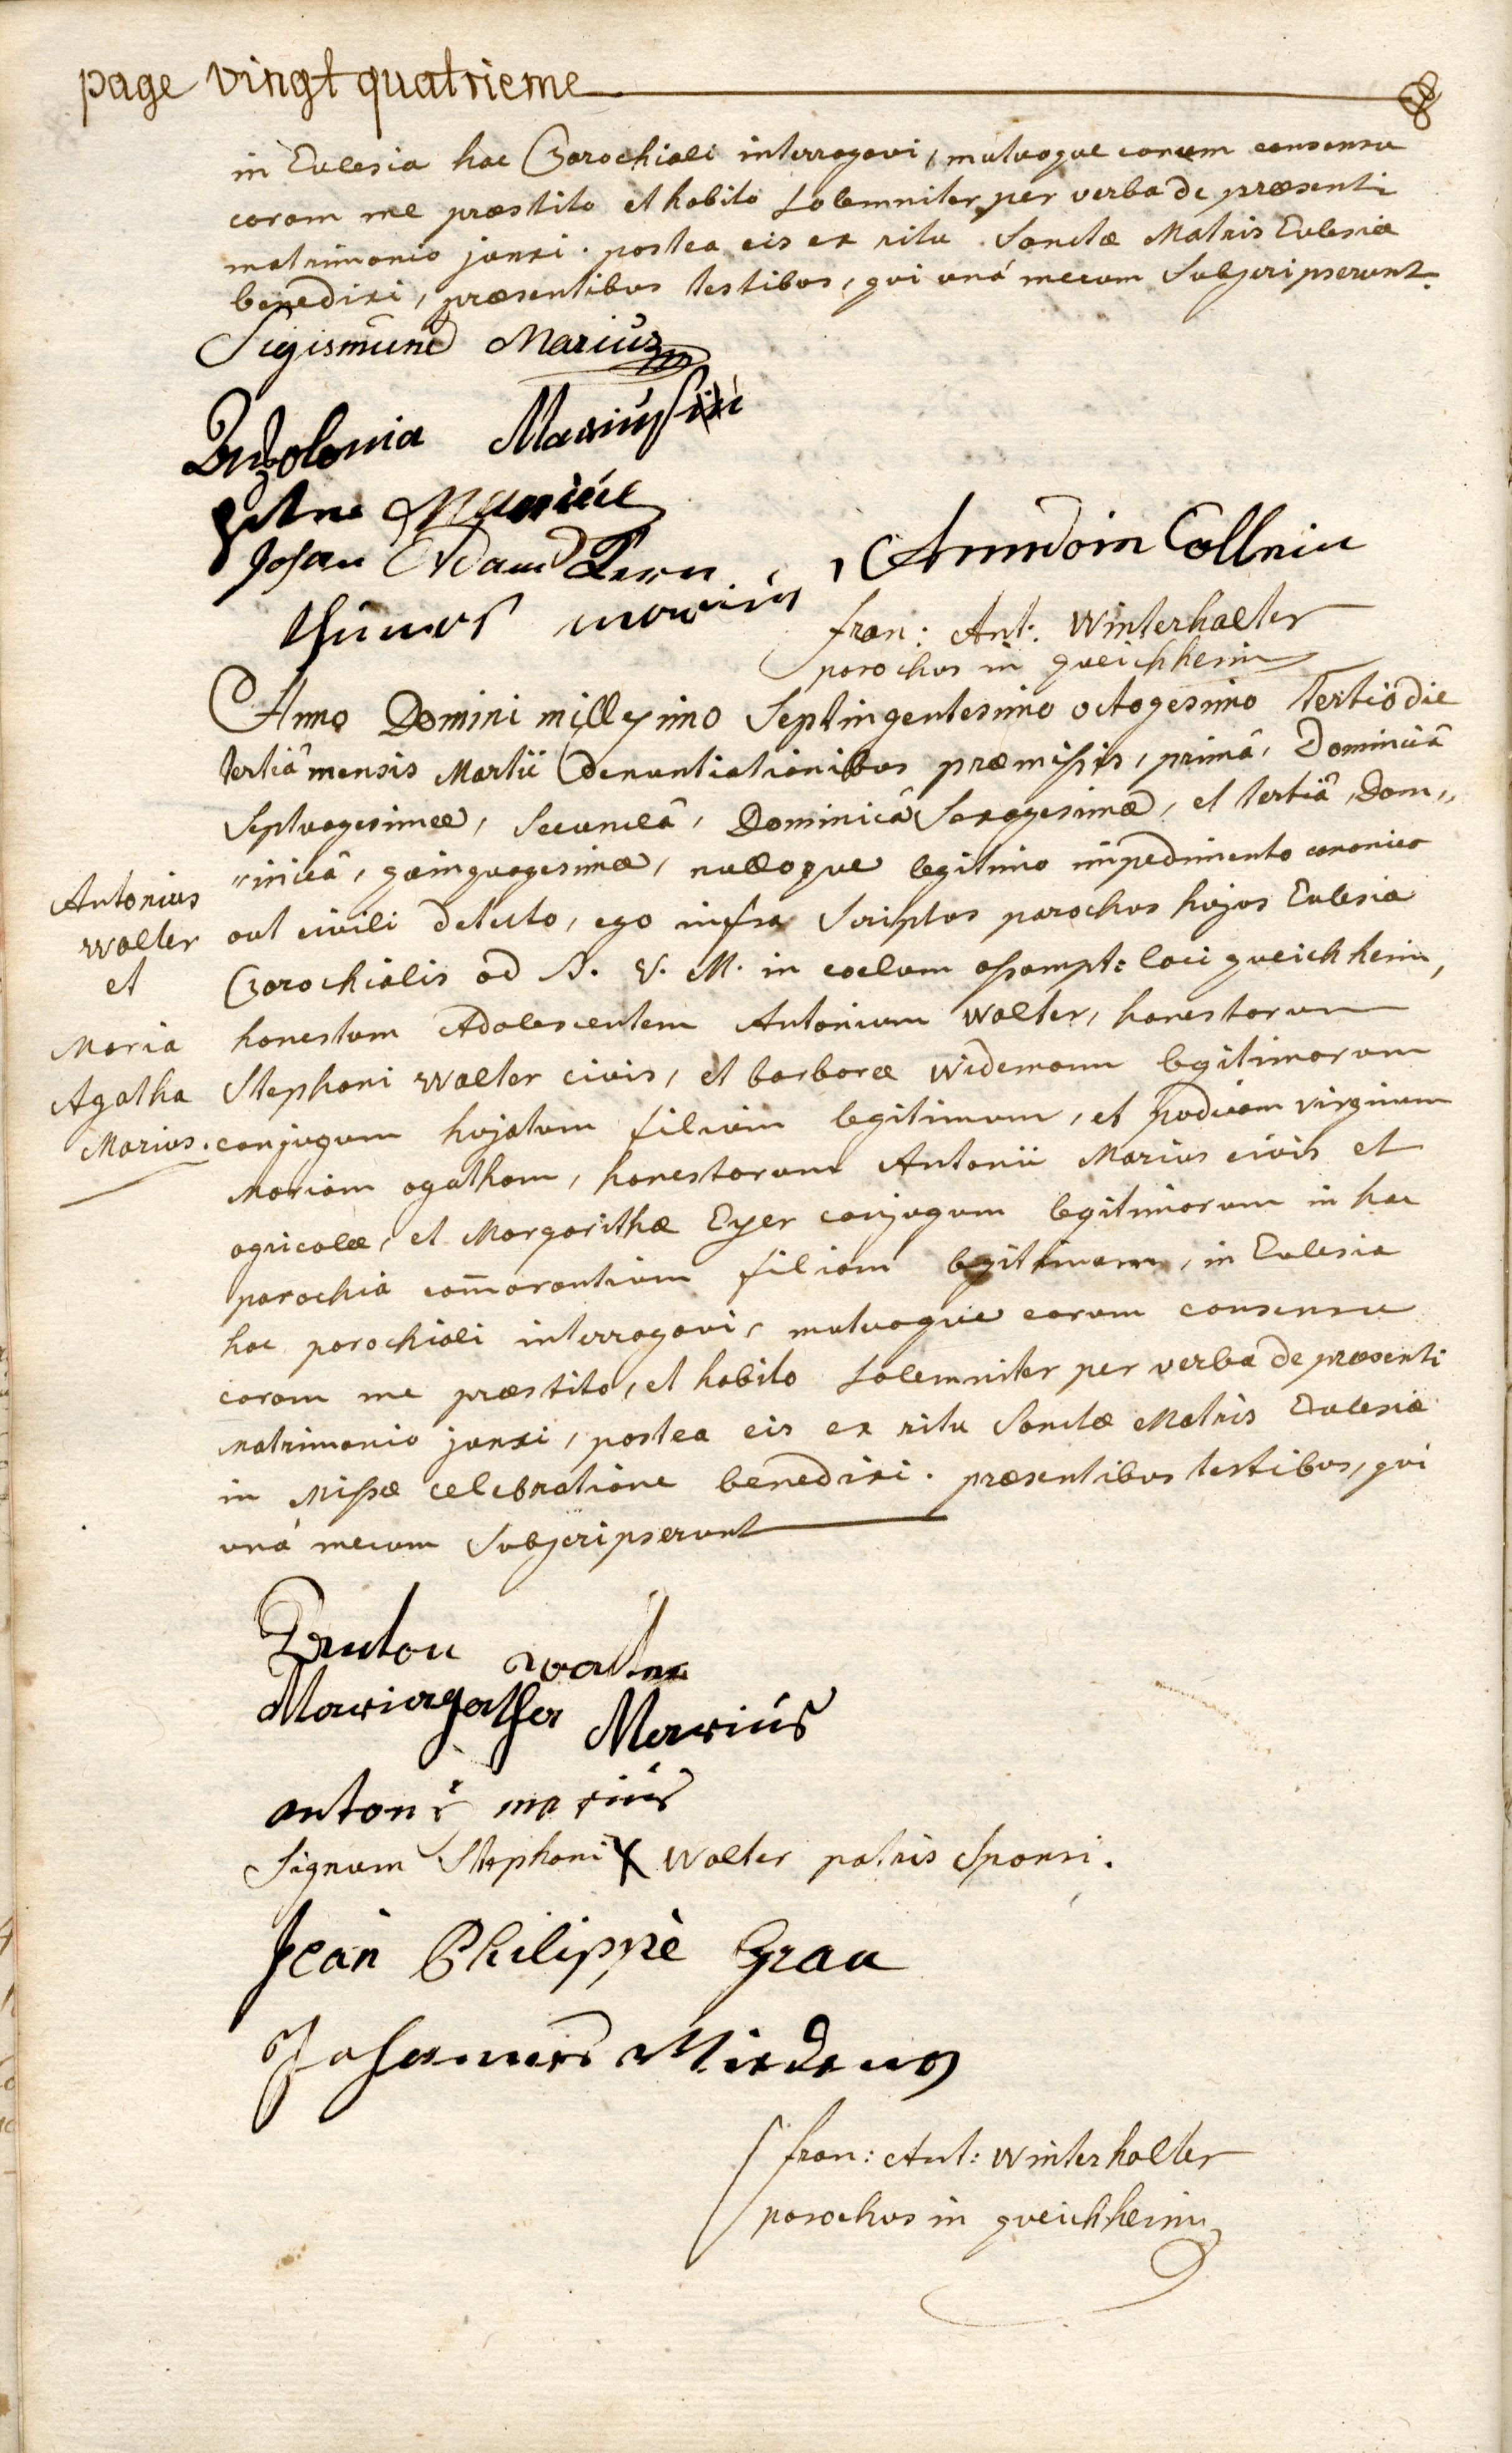 page vingt quatrieme
in Ecclesia hac Parochiali interrogavi, mutuoque eorum consensu
coram me præstito et habito Solemniter per verba de præsenti
matrimonio junxi. postea eis ex ritu Sanctæ Matris Ecclesiæ
benedixi, præsentibus testibus, qui unà mecum Subscripserunt.
Sigismund Marius
Marius
Johan Adam Kern
Collein
fran: Ant: Winterhalter
parochus in queichheim
Anno Domini millesimo Septingentesimo octogesimo tertio die
tertiâ mensis Martii denuntiationibus præmissis, primâ, Dominicâ
Septuagesimæ, Secundâ, Dominicâ Sexagesimæ, et tertiâ, Dom„
„inicâ, quinquagesimæ, nulloque legitimo impedimento canonico
aut civili detecto, ego infra Scriptus parochus hujus Ecclesia
Parochialis ad B. V. M. in coelum assumpt: loci queichheim,
honestum Adolescentem Antonium Walter, honestorum
Stephani Walter civis, et barbaræ Widemann legitimorum
conjugum hujatum filium legitimum, et pudicam virginem
Mariam agatham, honestorum Antonii Marius civis et
agricolæ, et Margarithæ Eyer conjugum legitimorum in hac
parochia com̄orantium filiam legitimam, in Ecclesia
hac parochiali interrogavi, mutuoque eorum consensu
coram me præstito, et habito Solemniter per verba de præsenti
Matrimonio junxi, postea eis ex ritu Sanctæ Matris Ecclesiæ
in Missæ celebratione benedixi. præsentibus testibus, qui
unà mecum Subscripserunt
Antonius
Walter
et
Maria
Agatha
Marius.
Anton Walter
Mariagatha Marius
antoni marius
Signum Stephani X Walter patris Sponsi.
Jean Philippe Grau
Johannes
fran: Ant: Winterhalter
parochus in queichheim